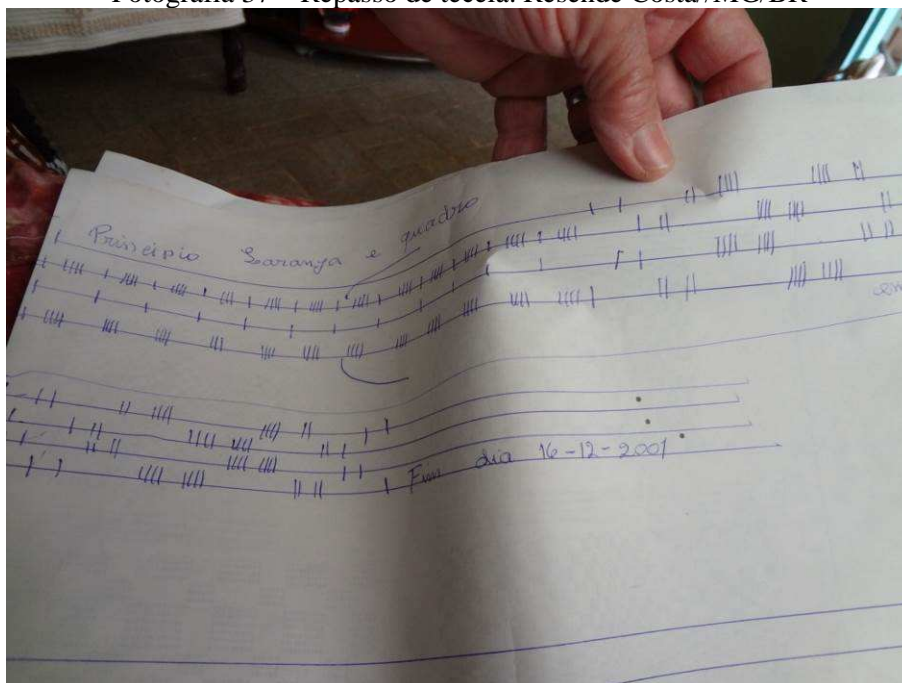 Fotografia 37 – Repasso de tecelã. Resende Costa/MG/BR
Principio Laranja e quadro
Fim dia 16-12-2001